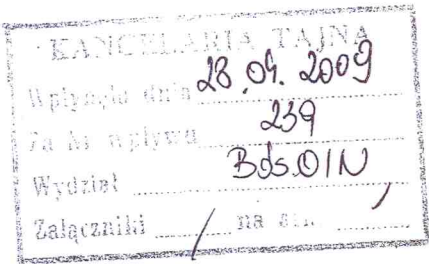 KANCELARIA TAJNA
Wpłynęło dnia 28.04.2009
Za Nr wpływu 239
Wydział BdsOIN
Załączniki / na str.